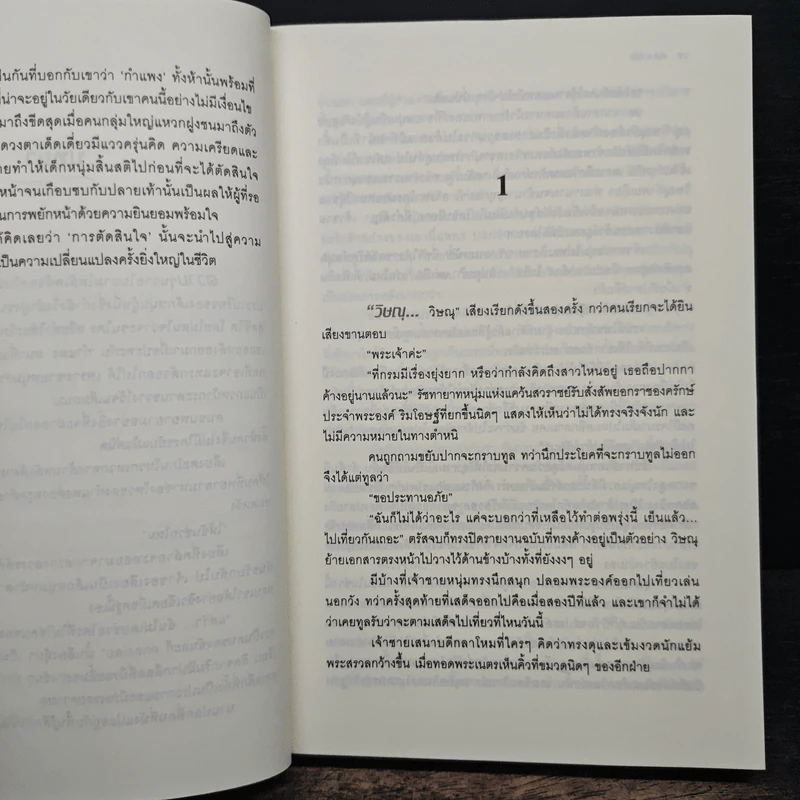 ป็นกันที่บอกกับเขาว่า ‘กำแพง’ ทั้งห้านั้นพร้อมที่
ที่น่าจะอยู่ในวัยเดียวกับเขาคนนี้อย่างไม่มีเงื่อนไข
มาถึงขีดสุดเมื่อคนกลุ่มใหญ่แหวกฝูงชนมาถึงตัว
ดวงตาเด็ดเดี่ยวมีแววครุ่นคิด ความเครียดและ
ายทำให้เด็กหนุ่มสิ้นสติไปก่อนที่จะได้ตัดสินใจ
หน้าจนเกือบชบกับปลายเท้านั้นเป็นผลให้ผู้ที่รอ
นการพยักหน้าด้วยความยินยอมพร้อมใจ
ด้คิดเลยว่า ‘การตัดสินใจ’ นั้นจะนำไปสู่ความ
เป็นความเปลี่ยนแปลงครั้งยิ่งใหญ่ในชีวิต
1
“วิษณุ... วิษณุ” เสียงเรียกดังขึ้นสองครั้ง กว่าคนเรียกจะได้ยิน
เสียงขานตอบ
“พระเจ้าค่ะ”
“ที่กรมมีเรื่องยุ่งยาก หรือว่ากำลังคิดถึงสาวไหนอยู่ เธอถือปากกา
ค้างอยู่นานแล้วนะ” รัชทายาทหนุ่มแห่งแคว้นสวราชย์รับสั่งสัพยอกราชองครักษ์
ประจำพระองค์ ริมโอษฐ์ที่ยกขึ้นนิดๆ แสดงให้เห็นว่าไม่ได้ทรงจริงจังนัก และ
ไม่มีความหมายในทางตำหนิ
คนถูกถามขยับปากจะกราบทูล ทว่านึกประโยคที่จะกราบทูลไม่ออก
จึงได้แต่ทูลว่า
“ขอประทานอภัย”
“ฉันก็ไม่ได้ว่าอะไร แค่จะบอกว่าที่เหลือไว้ทำต่อพรุ่งนี้ เย็นแล้ว...
ไปเที่ยวกันเถอะ” ตรัสจบก็ทรงปิดรายงานฉบับที่ทรงค้างอยู่เป็นตัวอย่าง วิษณุ
ย้ายเอกสารตรงหน้าไปวางไว้ด้านข้างบ้างทั้งที่ยังงงๆ อยู่
มีบ้างที่เจ้าชายหนุ่มทรงนึกสนุก ปลอมพระองค์ออกไปเที่ยวเล่น
นอกวัง ทว่าครั้งสุดท้ายที่เสด็จออกไปคือเมื่อสองปีที่แล้ว และเขาก็จำไม่ได้
ว่าเคยทูลรับว่าจะตามเสด็จไปเที่ยวที่ไหนวันนี้
เจ้าชายเสนาบดีกลาโหมที่ใครๆ คิดว่าทรงดุและเข้มงวดนักแย้ม
พระสรวลกว้างขึ้น เมื่อทอดพระเนตรเห็นคิ้วที่ขมวดนิดๆ ของอีกฝ่าย